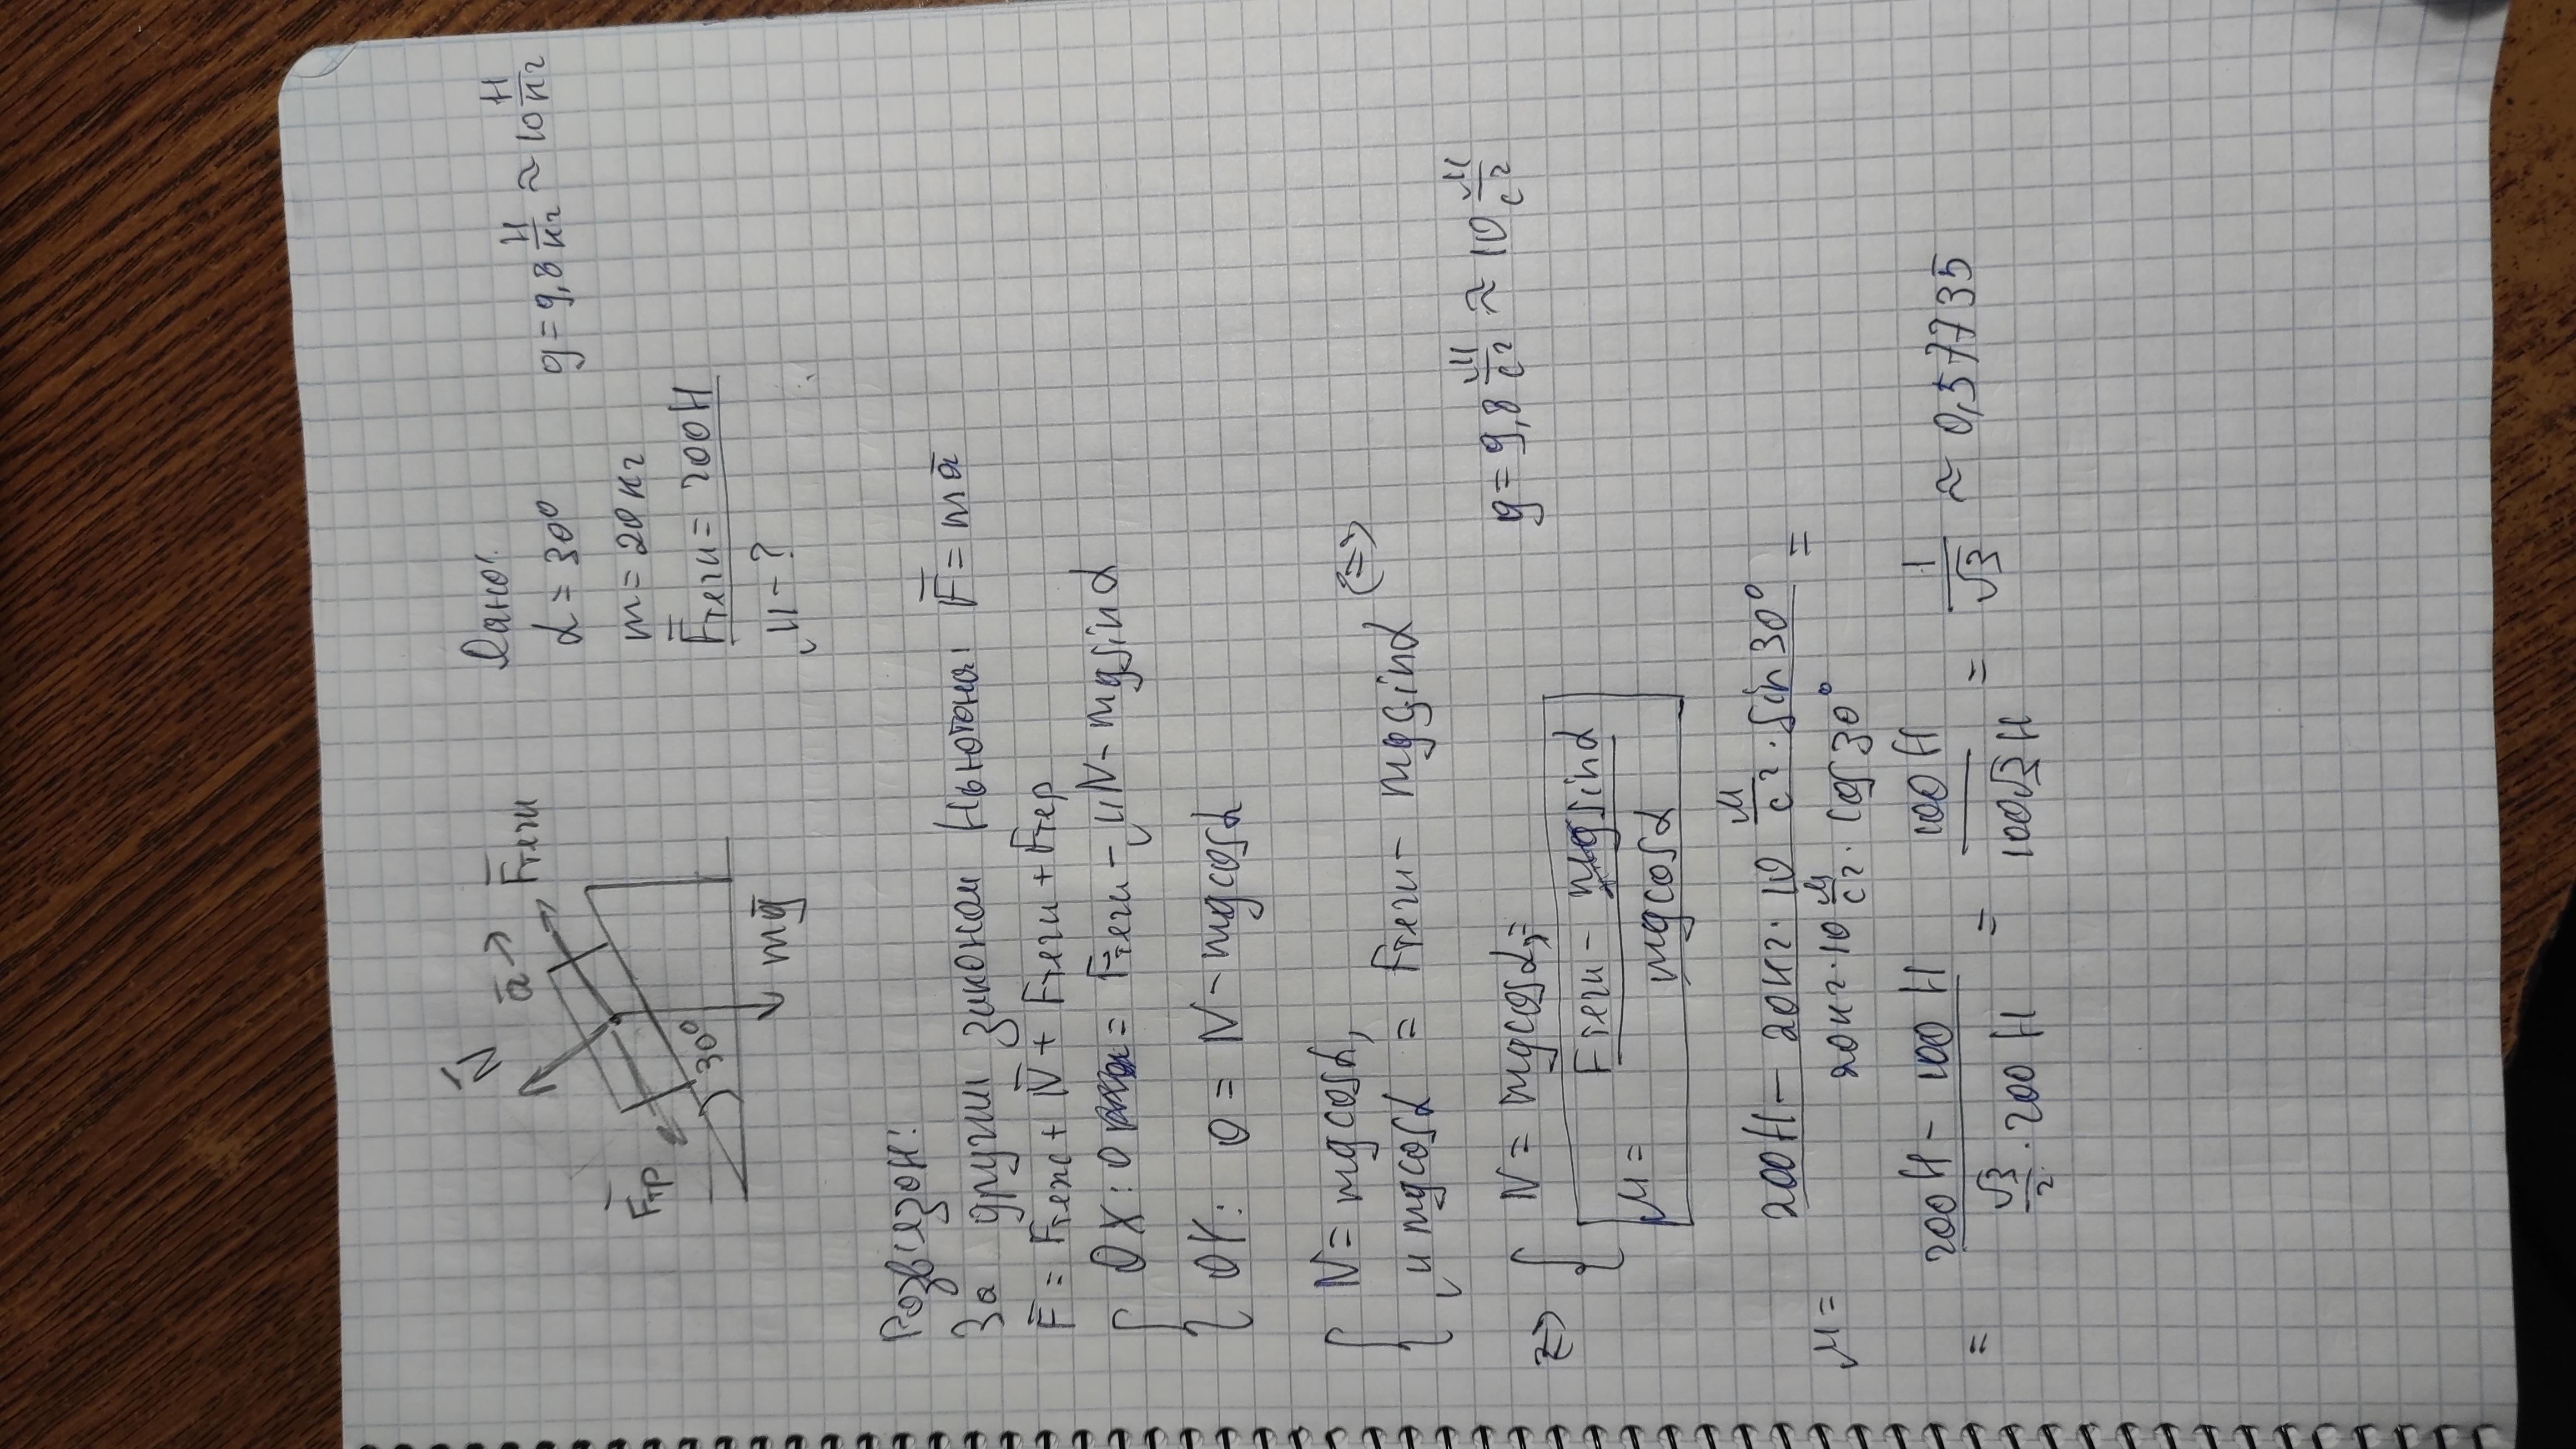 Дано:
α = 30°
g = 9,8 Н/кг ≈ 10 Н/кг
m = 20 кг
F̅тяги = 200 Н
μ - ?
N̅
a̅
F̅тяги
F̅тр
30°
mg̅
Розвʼязок:
За другим законом Ньютона: F̅ = ma̅
F̅ = F̅теж + N̅ + F̅тяги + F̅тер
{ OX: 0 = Fтяги - μN - mg sinα
{ OY: 0 = N - mg cosα
{ N = mg cosα,
{ μ mg cosα = Fтяги - mg sinα (=>)
=> { N = mg cosα;
{ μ = (Fтяги - mg sinα)/(mg cosα)
g = 9,8 м/с² ≈ 10 м/с²
μ = (200 Н - 20 кг · 10 м/с² · sin 30°)/(20 кг · 10 м/с² · cos 30°) =
= (200 Н - 100 Н)/(√3/2 · 200 Н) = 100 Н/(100√3 Н) = 1/√3 ≈ 0,57735